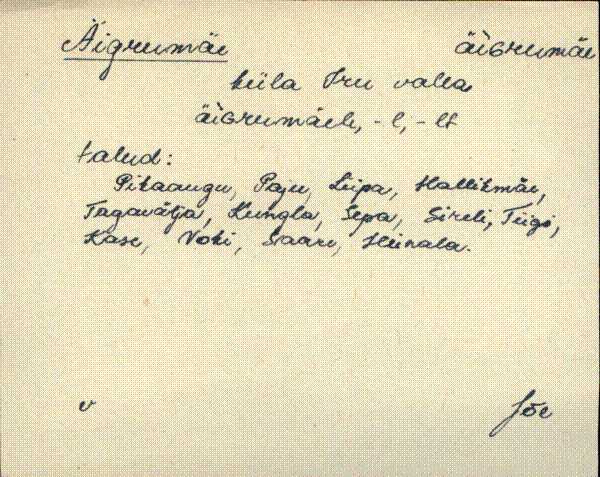 Äigrumäe äiGrumäe
küla Iru valla
äìGrumäele, -l, -lt
talud:
Pikaaugu, Paju, Liipa, Hallikmäe,
Tagavälja, Kungla, Sepa, Sireli, Tiigi,
Kase, Voki, Saare, Heinala.
v Jõe